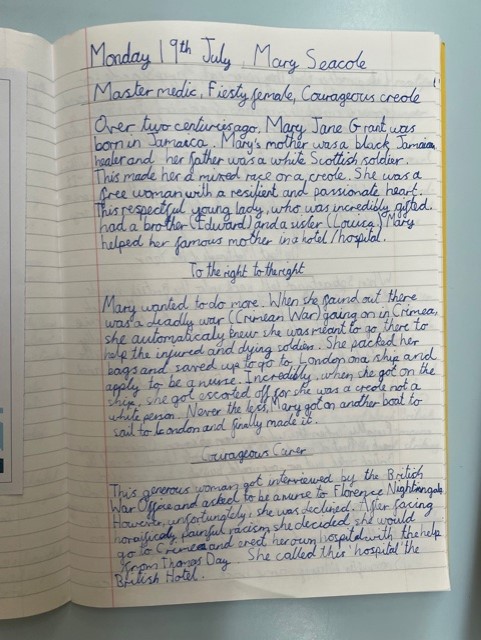 Monday 19th July, Mary Seacole
Master medic, Fiesty female, Courageous creole
Over two centuries ago, Mary Jane Grant was
born in Jamaica. Mary's mother was a black Jamaican
healer and her father was a white Scottish soldier.
This made her a mixed race or a creole. She was a
free woman with a resilient and passionate heart.
This respectful young lady, who was incredibly gifted.
had a brother (Edward) and a sister (Louica) Mary
helped her famous mother in a hotel / hospital.
To the right to the right
Mary wanted to do more. When she found out there
was a deadly war (Crimean War) going on in Crimea,
she automaticaly knew she was meant to go there to
help the injured and dying soldiers. She packed her
bags and saved up to go to London on a ship and
apply to be a nurse. Incredibly, when she got on the
ship, she got escorted off for she was a creole not a
white person. Never the less, Mary got on another boat to
sail to London and finally made it.
Courageous Carer
This generous woman got interviewed by the British
War Office and asked to be a nurse to Florence Nightingale.
However, unfortunately, she was declined. After facing
painful racism, she decided she would
go to Crimea and erect her own hospital with the help
from Thomas Day. She called this 'hospital' the
British Hotel.